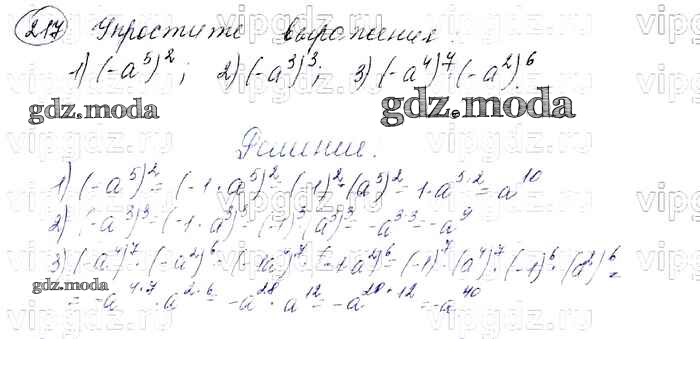 217 Упростите выражения:
1) (-a⁵)²; 2) (-a³)³; 3) (-a⁴)⁷·(-a²)⁶
gdz.moda gdz.moda
Решение.
1) (-a⁵)² = (-1·a⁵)² = (-1)²·(a⁵)² = 1·a⁵·² = a¹⁰
2) (-a³)³ = (-1·a³)³ = (-1)³·(a³)³ = -a³·³ = -a⁹
3) (-a⁴)⁷·(-a²)⁶ = (-1a⁴)⁷·(-1a²)⁶ = (-1)⁷·(a⁴)⁷·(-1)⁶·(a²)⁶ =
gdz.moda
= -a⁴·⁷·a²·⁶ = -a²⁸·a¹² = -a²⁸⁺¹² = -a⁴⁰